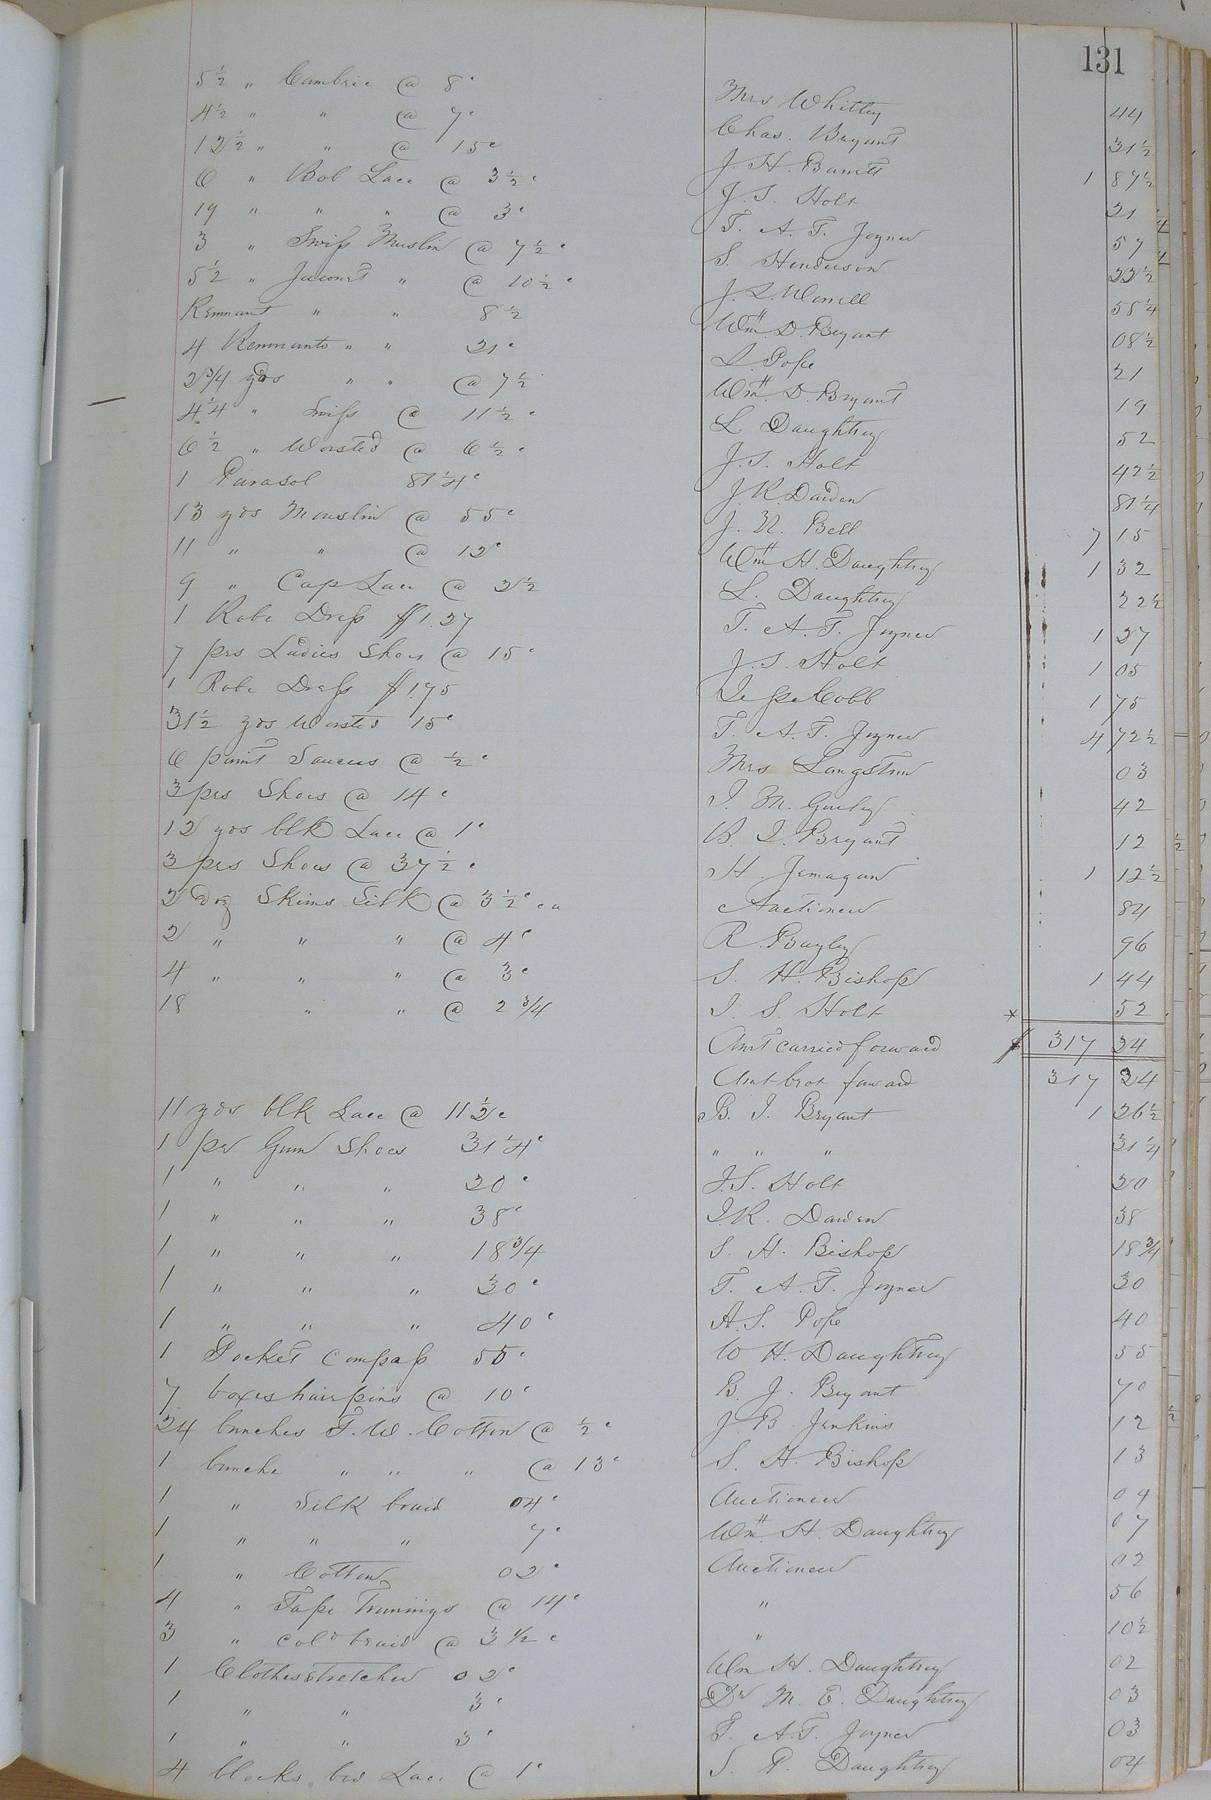 131
5½ " Cambric @ 8c Mrs Whitley 44
4½ " " @ 7c Chas. Bryant 31½
12½ " " @ 15c J. H. Barrett 1 87½
6 " Bob Lace @ 3½c J. S. Holt 21
19 " " " @ 3c T. A. T. Joyner 57
3 " Swiss Muslin @ 7½c S. Henderson 22½
5½ " Jaconet " @ 10½c J. L. Worrell 55¼
Remnant " " 8½ Wm. D. Bryant 08½
4 Remnants " " 21c L. Pope 21
2¾ yds " " @ 7½ Wm. D. Bryant 19
4¼ " Swiss @ 11½c L Daughtrey 52
6½ " Worsted @ 6½c J. S. Holt 42½
1 Parasol 81¼c J. R. Darden 81¼
13 yds Mouslin @ 55c J. N. Bell 7 15
11 " " @ 12c Wm H. Daughtrey 1 32
9 " Cap Lace @ 2½ L. Daughtrey 22½
1 Robe Dress $1.27 T. A. T. Joyner 1 27
7 prs Ladies Shoes @ 15c J. S. Holt 1 05
1 Robe Dress $1.75 Cobb 1 75
31½ yds Worsted 15c T. A. T. Joyner 4 72½
6 paint Saucers @ ½c Mrs Langston 03
3 prs Shoes @ 14c J. M. Gurley 42
12 yds blk Lace @ 1c B. J. Bryant 12
3 prs Shoes @ 37½c H. Jernagan 1 12½
2 doz Skeins Silk @ 3½c ea Auctioneer 84
2 " " " @ 4c R. Bagley 96
4 " " " @ 3c S. H. Bishop 1 44
18 " " @ 2¾ J. S. Holt 52
Amt carried forward $ 317 24
Amt brot forward 317 24
11 yds blk Lace @ 11½c B. J. Bryant 1 26½
1 pr Gum Shoes 31¼c " " " 31¼
1 " " " 20c J. S. Holt 20
1 " " " 38c J. R. Darden 38
1 " " " 18¾ S. H. Bishop 18¾
1 " " " 30c T. A. T. Joyner 30
1 " " " 40c A. S. Pope 40
1 Pocket Compass 55c W H. Daughtrey 55
7 boxes hair pins @ 10c B. J. Bryant 70
24 bunches T. W. Cotton @ ½c J. B Jenkins 12
1 bunche " " " @ 13c S. H. Bishop 13
1 " Silk braid 04c Auctioneer 04
1 " " " 7c Wm. H. Daughtrey 07
1 " Cotton 02c Auctioneer 02
4 " Tape Trimmings @ 14c " 56
3 " cold braid @ 3½c " 10½
1 Clothes stretcher 02c Wm H. Daughtrey 02
1 " " 3c Dr M. E. Daughtrey 03
1 " " 3c T. A. T. Joyner 03
4 blocks bed Lace @ 1c S. P. Daughtrey 04